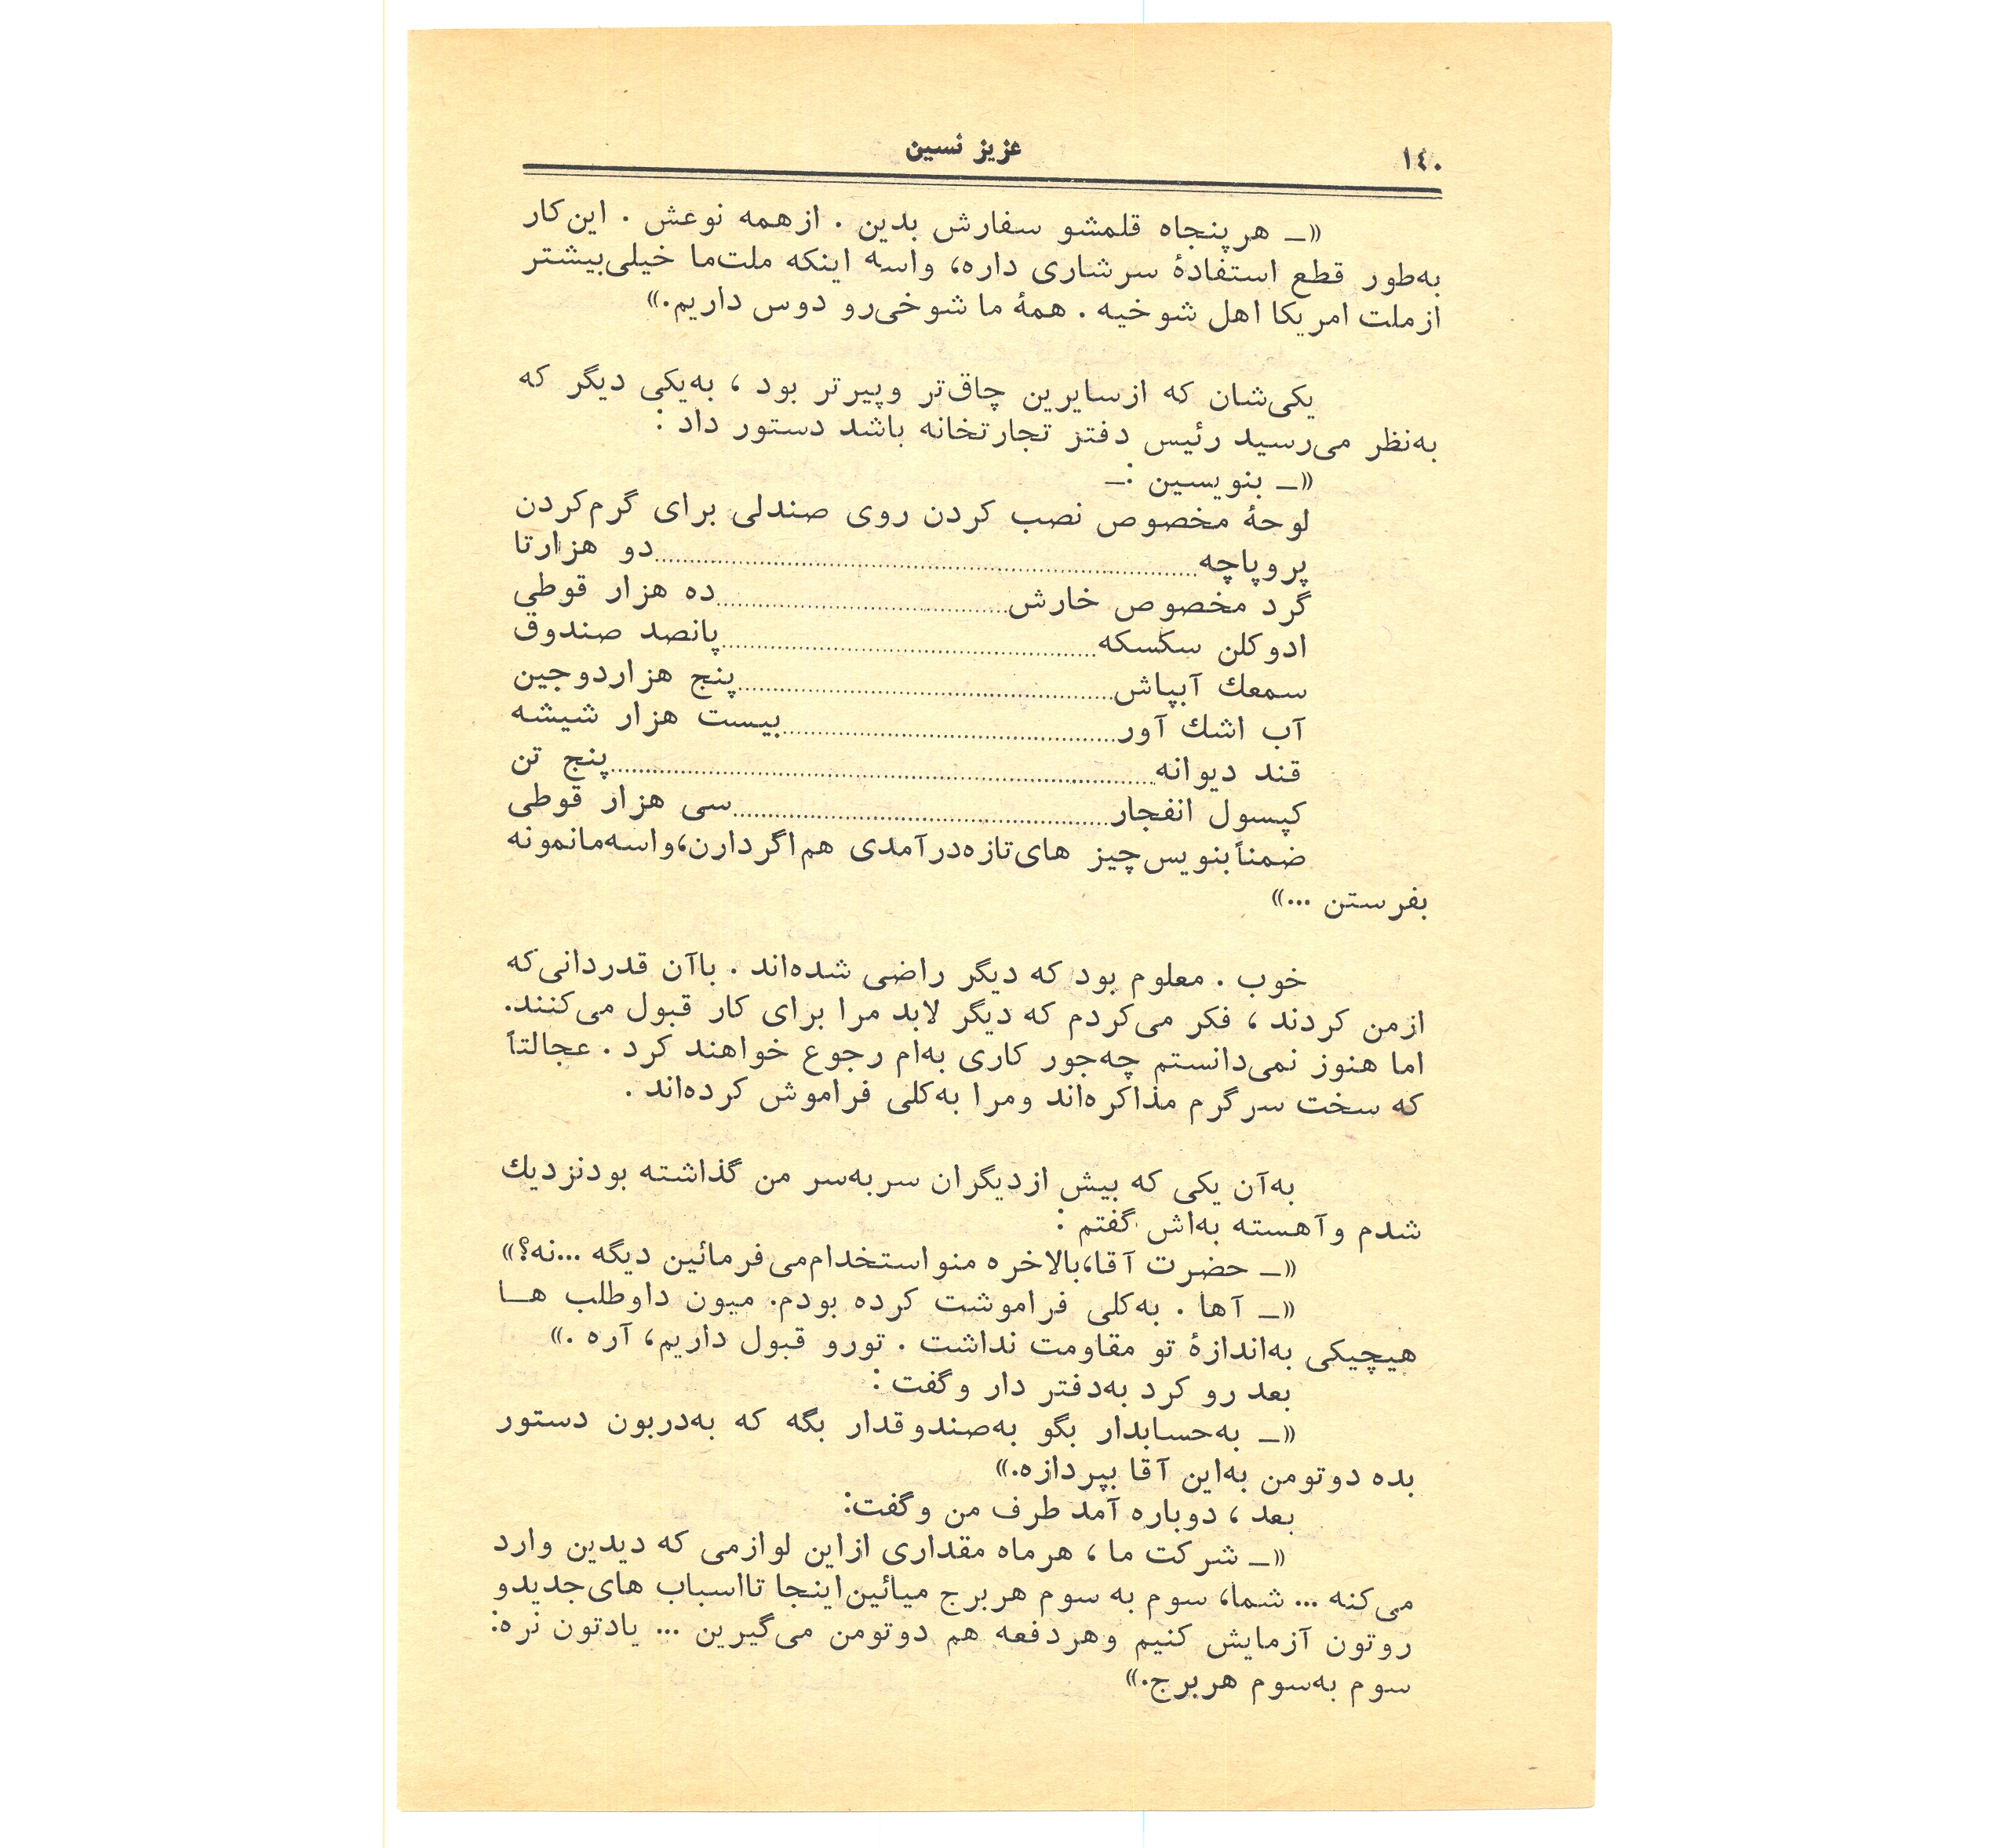 ۱٤۰
عزیز نسین
«ـ هرپنجاه قلمشو سفارش بدین . ازهمه نوعش . این‌کار
به‌طور قطع استفادهٔ سرشاری داره، واسه اینکه ملت‌ما خیلی‌بیشتر
ازملت امریکا اهل شوخیه . همهٔ ما شوخی‌رو دوس داریم.»
یکی‌شان که ازسایرین چاق‌تر وپیرتر بود ، به‌یکی دیگر که
به‌نظر می‌رسید رئیس دفتر تجارتخانه باشد دستور داد :
«ـ بنویسین :ـ
لوحهٔ مخصوص نصب کردن روی صندلی برای گرم‌کردن
پروپاچه..........دو هزارتا
گرد مخصوص خارش..........ده هزار قوطی
ادوکلن سکسکه..........پانصد صندوق
سمعك آبپاش..........پنج هزاردوجین
آب اشك آور..........بیست هزار شیشه
قند دیوانه..........پنج تن
کپسول انفجار..........سی هزار قوطی
ضمناً بنویس‌چیز های‌تازه‌درآمدی هم‌اگردارن،واسه‌مانمونه
بفرستن ...»
خوب . معلوم بود که دیگر راضی شده‌اند . باآن قدردانی‌که
ازمن کردند ، فکر می‌کردم که دیگر لابد مرا برای کار قبول می‌کنند.
اما هنوز نمی‌دانستم چه‌جور کاری به‌ام رجوع خواهند کرد . عجالتاً
که سخت سرگرم مذاکره‌اند ومرا به‌کلی فراموش کرده‌اند .
به‌آن یکی که بیش ازدیگران سربه‌سر من گذاشته بودنزدیك
شدم وآهسته به‌اش گفتم :
«ـ حضرت آقا،بالاخره منواستخدام‌می‌فرمائین دیگه ...نه؟»
«ـ آها . به‌کلی فراموشت کرده بودم. میون داوطلب هـا
هیچیکی به‌اندازهٔ تو مقاومت نداشت . تورو قبول داریم، آره .»
بعد رو کرد به‌دفتر دار وگفت :
«ـ به‌حسابدار بگو به‌صندوقدار بگه که به‌دربون دستور
بده دوتومن به‌این آقا بپردازه.»
بعد ، دوباره آمد طرف من وگفت:
«ـ شرکت ما ، هرماه مقداری ازاین لوازمی که دیدین وارد
می‌کنه ... شما، سوم به سوم هربرج میائین‌اینجا تااسباب های‌جدیدو
روتون آزمایش کنیم وهردفعه هم دوتومن می‌گیرین ... یادتون نره:
سوم به‌سوم هربرج.»